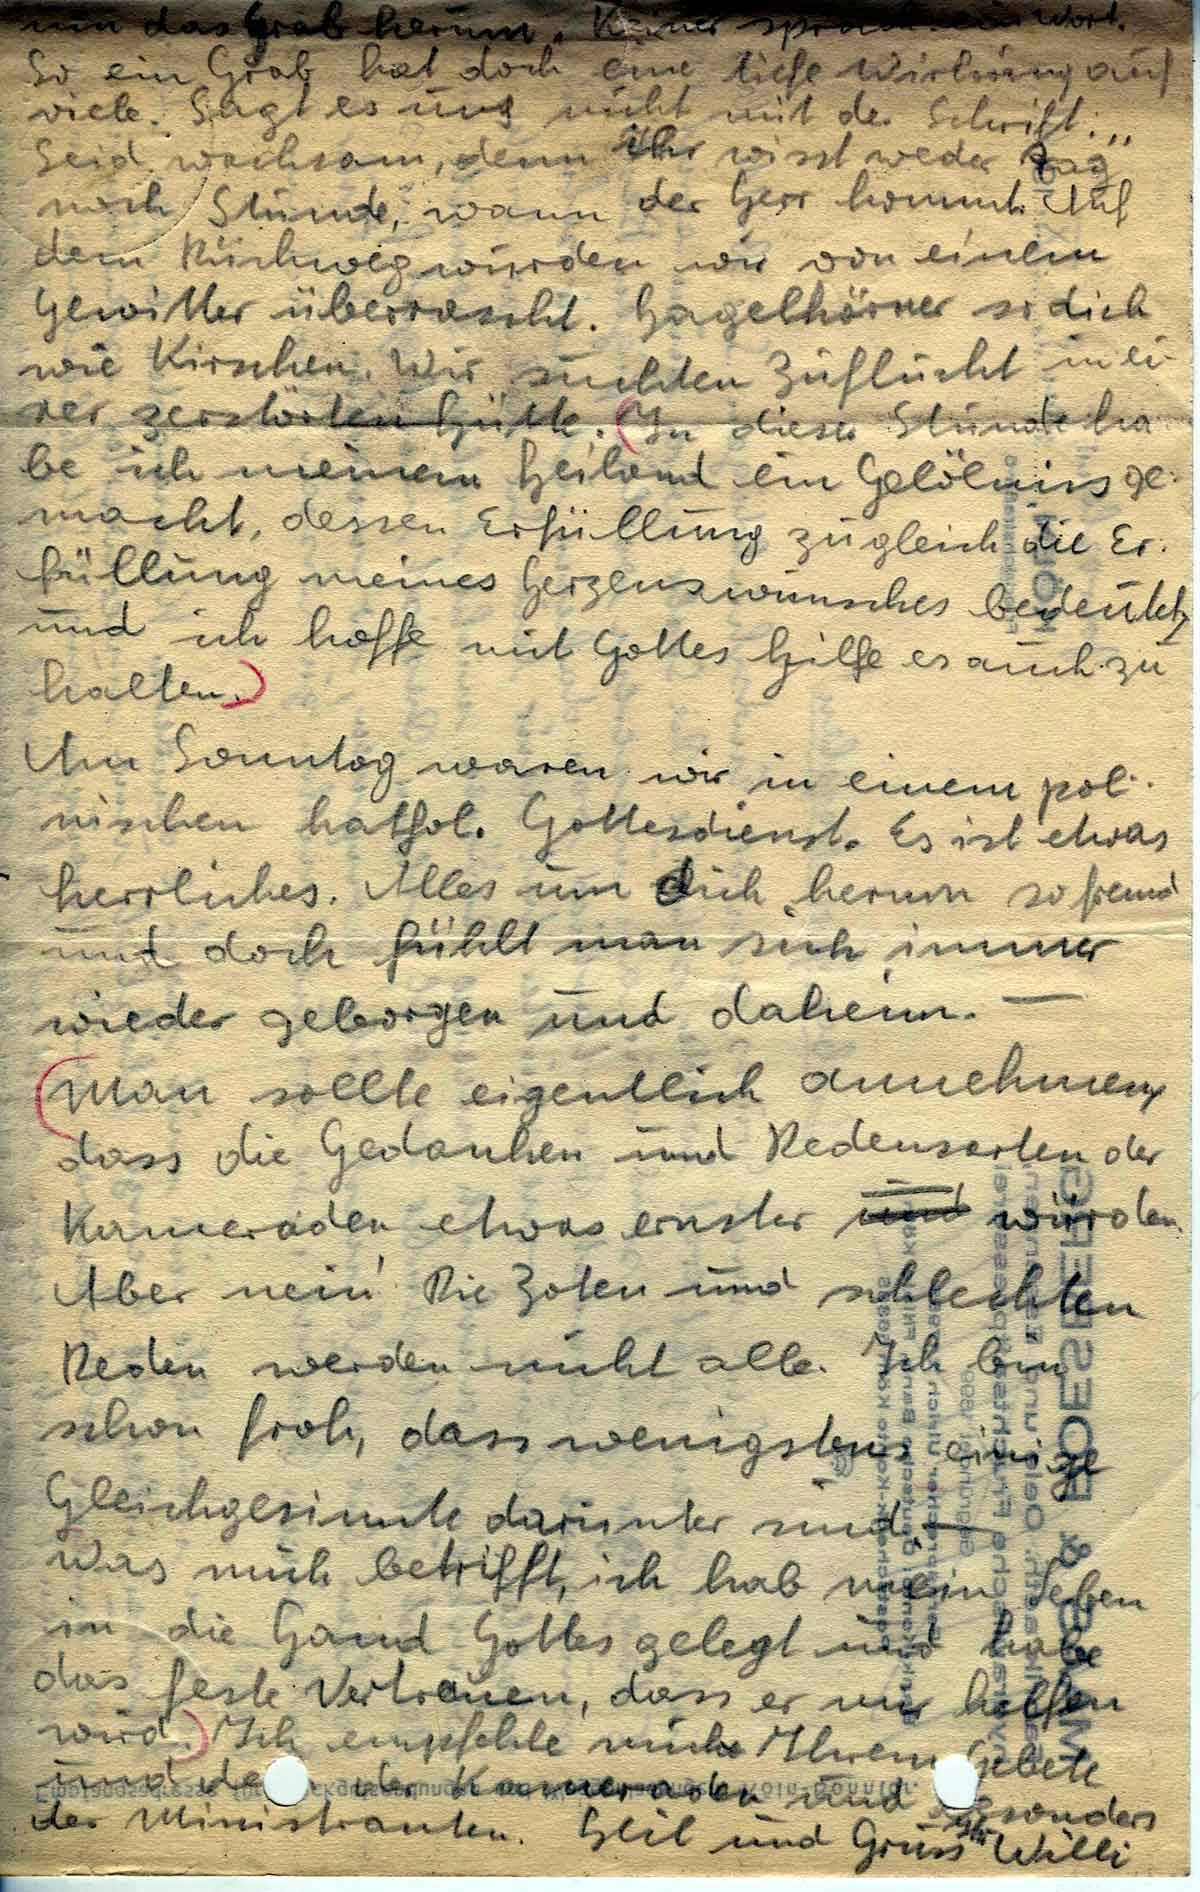 um das Grab herum. Keiner sprach ein Wort.
So ein Grab hat doch eine tiefe Wirkung auf
viele. Sagt es uns nicht mit der Schrift: „
Seid wachsam, denn Ihr wisst weder Tag"
noch Stunde, wann der Herr kommt. Auf
dem Rückweg wurden wir von einem
Gewitter überrascht. Hagelkörner so dick
wie Kirschen. Wir suchten Zuflucht in ei-
ner zerstörten Hütte. (In dieser Stunde ha-
be ich meinem Heiland ein Gelöbniss ge-
macht, dessen Erfüllung zugleich die Er-
füllung meines Herzenswunsches bedeutet,
und ich hoffe mit Gottes Hilfe es auch zu
halten.)
Am Sonntag waren wir in einem pol-
nischen kathol. Gottesdienst. Es ist etwas
herrliches. Alles um dich herum so fremd
und doch fühlt man sich immer
wieder geborgen und daheim. —
(Man sollte eigentlich annehmen,
dass die Gedanken und Redensarten der
Kameraden etwas ernster und würden.
Aber nein! Die Zoten und schlechten
Reden werden nicht alle. Ich bin
schon froh, dass wenigstens einige
Gleichgesinnte darunter sind. —
Was mich betrifft, ich hab mein Leben
in die Hand Gottes gelegt und habe
das feste Vertrauen, dass er mir helfen
wird.) Ich empfehle mich Ihrem Gebete
und der Kameraden und besonders
der Ministranten. Heil und Gruss Ihr Willi